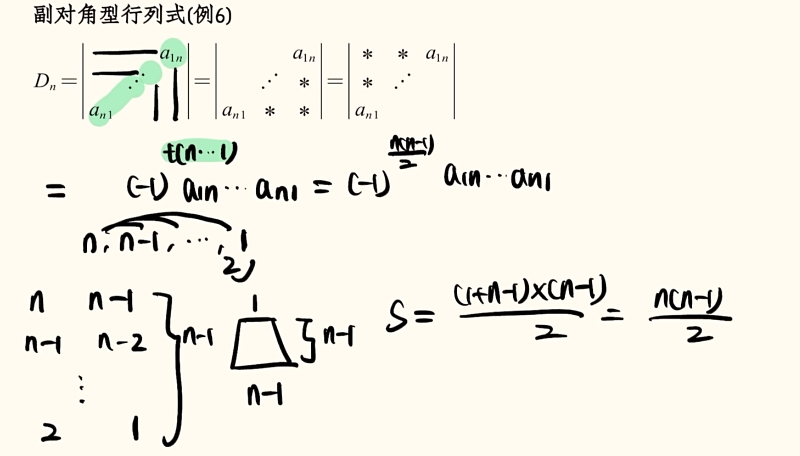 副对角型行列式(例6)
Dₙ = | a₁ₙ ⋰ aₙ₁ | = | a₁ₙ ⋰ * aₙ₁ * * | = | * * a₁ₙ * ⋰ aₙ₁ |
= (-1)^{t(n⋯1)} a₁ₙ⋯aₙ₁ = (-1)^{n(n-1)/2} a₁ₙ⋯aₙ₁
n, n-1, ⋯, 2, 1
n n-1
n-1 n-2
⋮
2 1
} n-1
1
} n-1
n-1
S = (1+n-1)×(n-1)/2 = n(n-1)/2